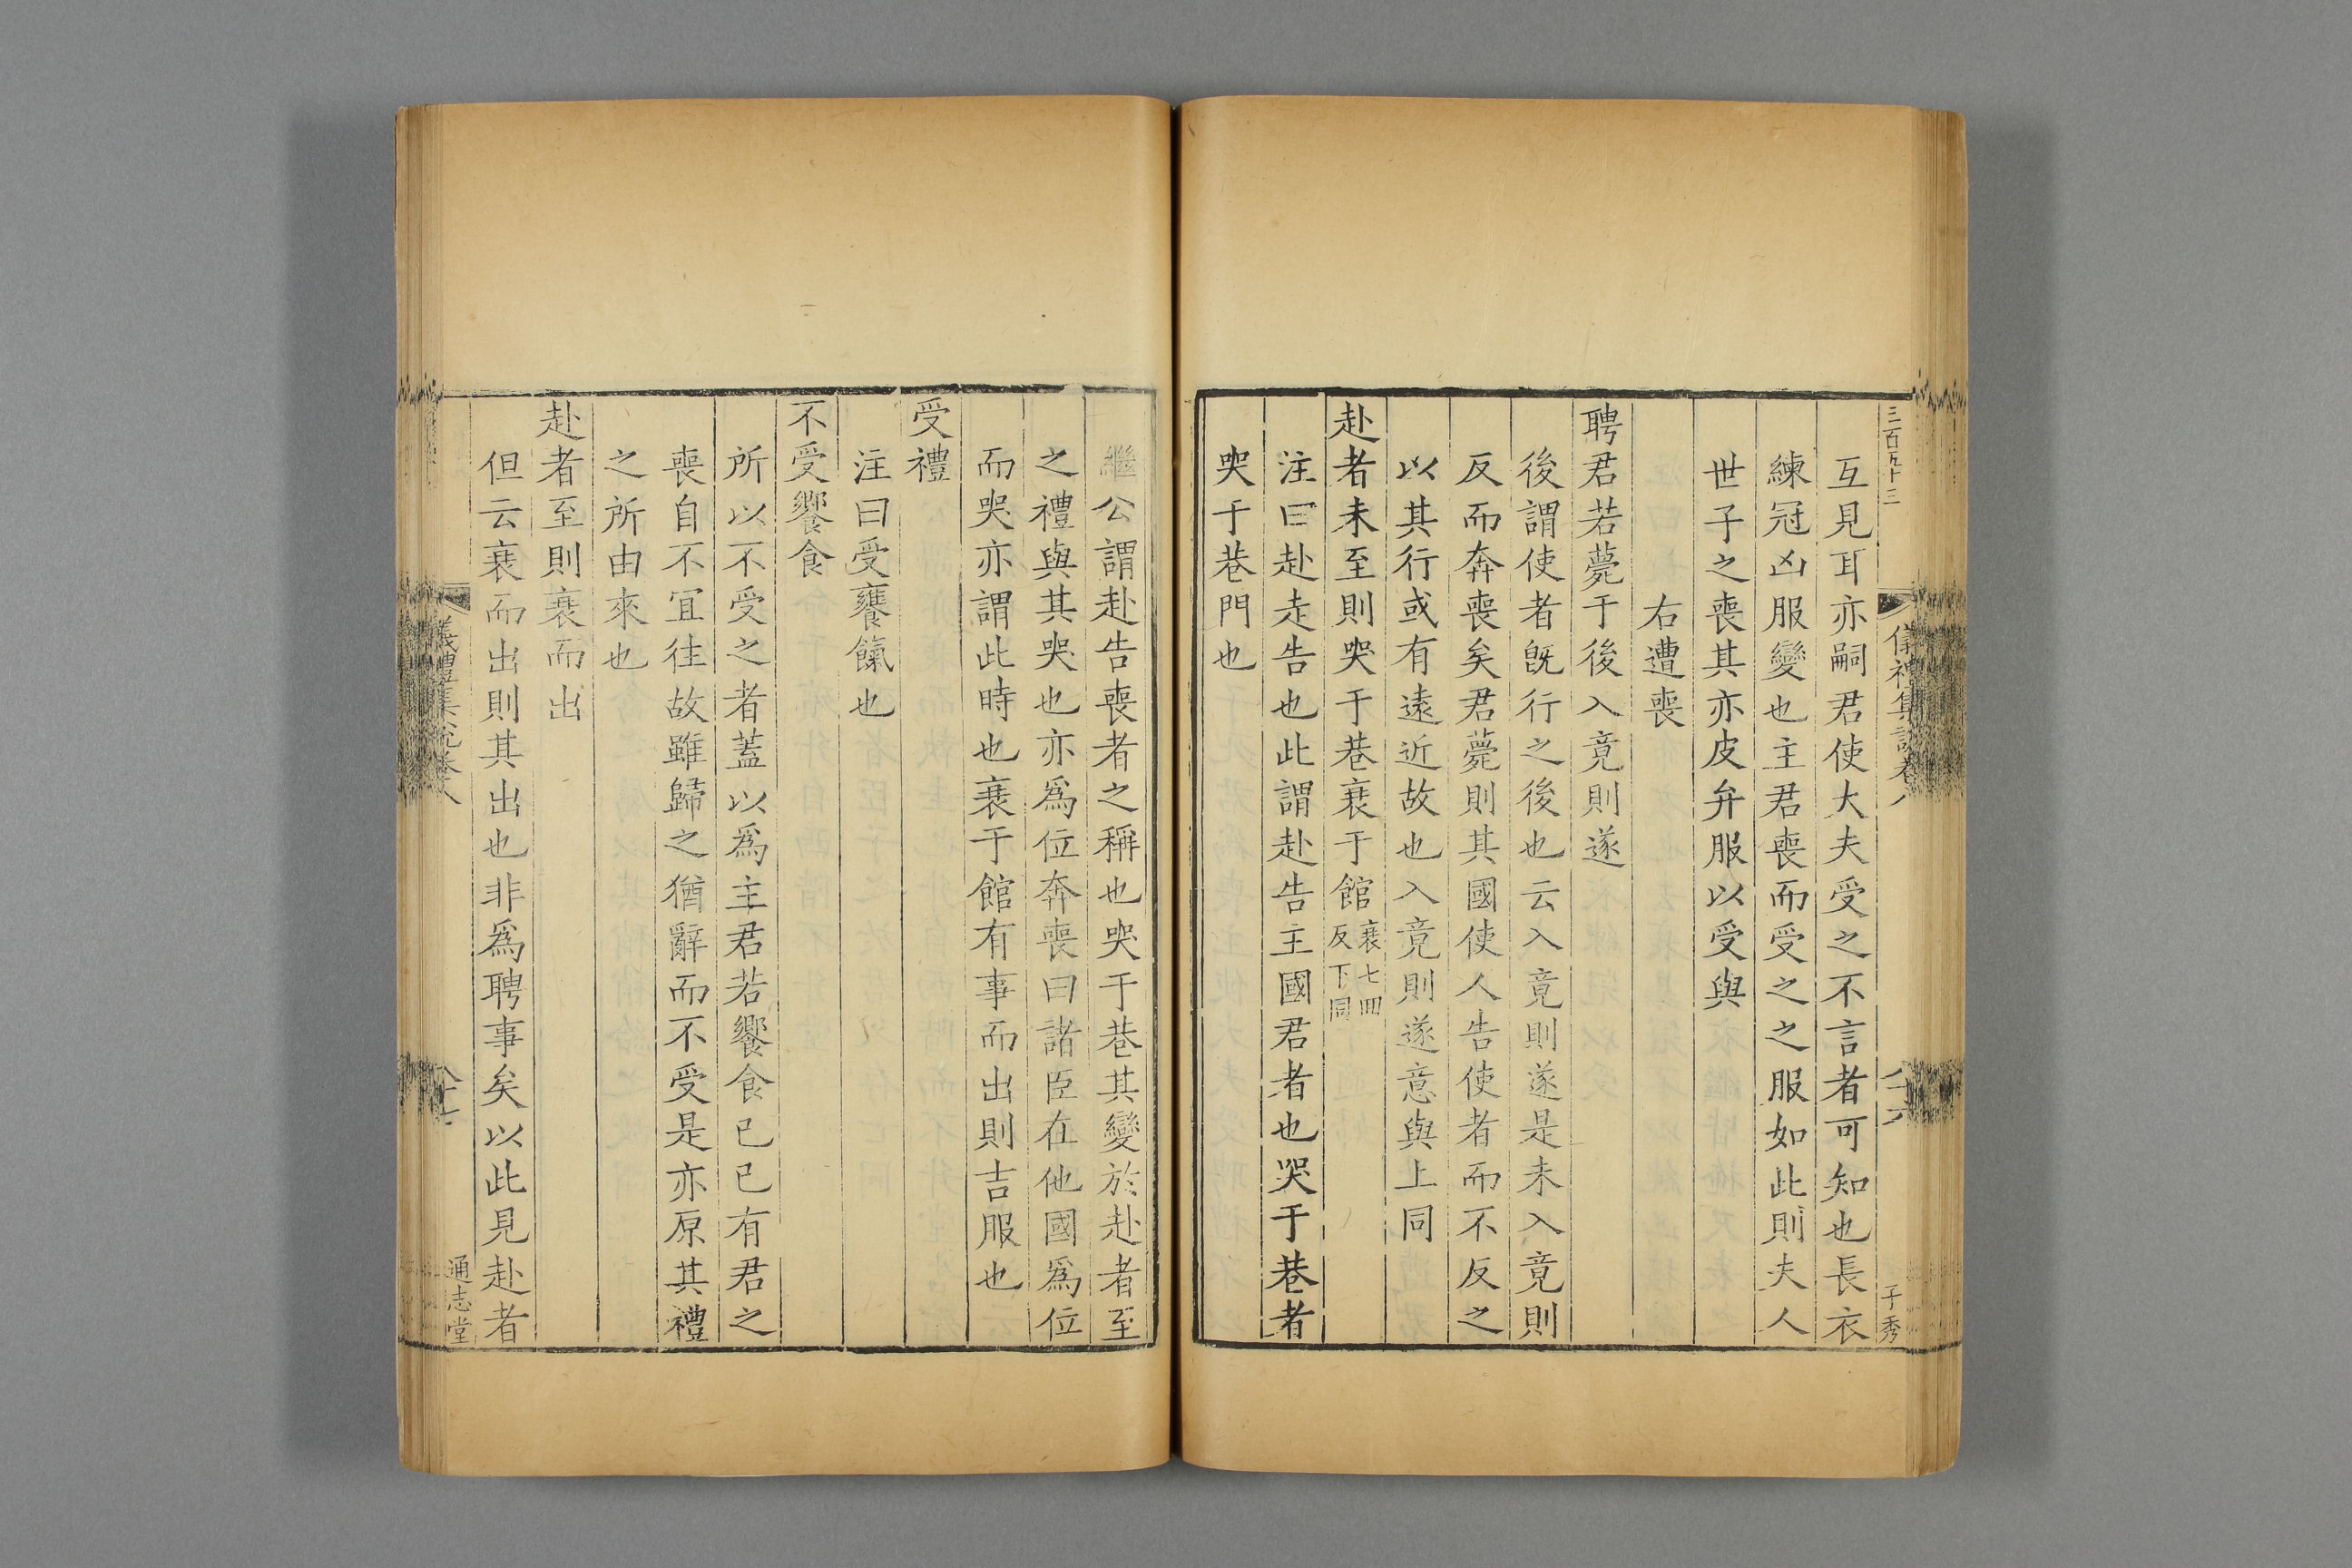 三百五十三
儀禮集說卷八
八十六
子秀
互見耳亦嗣君使大夫受之不言者可知也長衣
練冠凶服變也主君喪而受之之服如此則夫人
世子之喪其亦皮弁服以受與
右遭喪
聘君若薨于後入竟則遂
後謂使者旣行之後也云入竟則遂是未入竟則
反而奔喪矣君薨則其國使人告使者而不反之
以其行或有遠近故也入竟則遂意與上同
赴者未至則哭于巷衰于館衰七回反下同
注曰赴走告也此謂赴告主國君者也哭于巷者
哭于巷門也
繼公謂赴告喪者之稱也哭于巷其變於赴者至
之禮與其哭也亦爲位奔喪曰諸臣在他國爲位
而哭亦謂此時也衰于館有事而出則吉服也
受禮
注曰受饔餼也
不受饗食
所以不受之者蓋以爲主君若饗食已已有君之
喪自不宜往故雖歸之猶辭而不受是亦原其禮
之所由來也
赴者至則衰而出
但云衰而出則其出也非爲聘事矣以此見赴者
儀禮集說卷八
八十七
通志堂